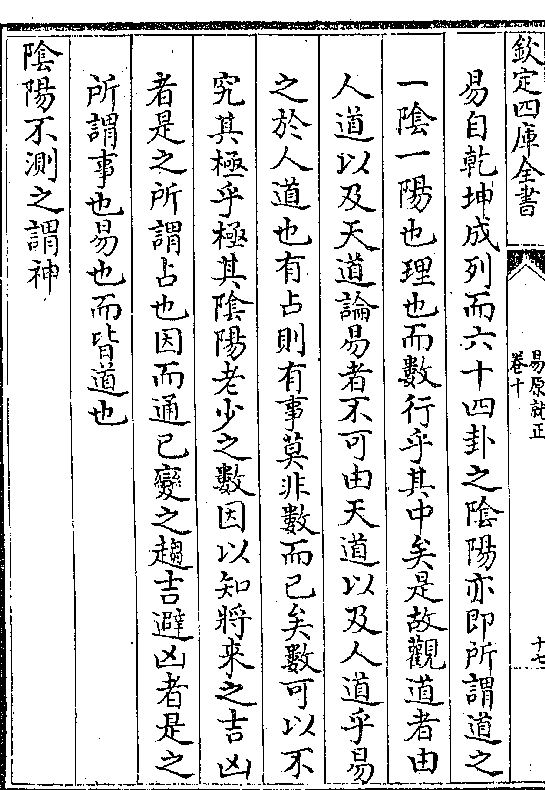 欽定四庫全書
易原就正
卷十
十七
易自乾坤成列而六十四卦之陰陽亦即所謂道之
一陰一陽也理也而數行乎其中矣是故觀道者由
人道以及天道論易者不可由天道以及人道乎易
之於人道也有占則有事莫非數而已矣數可以不
究其極乎極其陰陽老少之數因以知將來之吉凶
者是之所謂占也因而通已變之趨吉避凶者是之
所謂事也易也而皆道也
陰陽不測之謂神